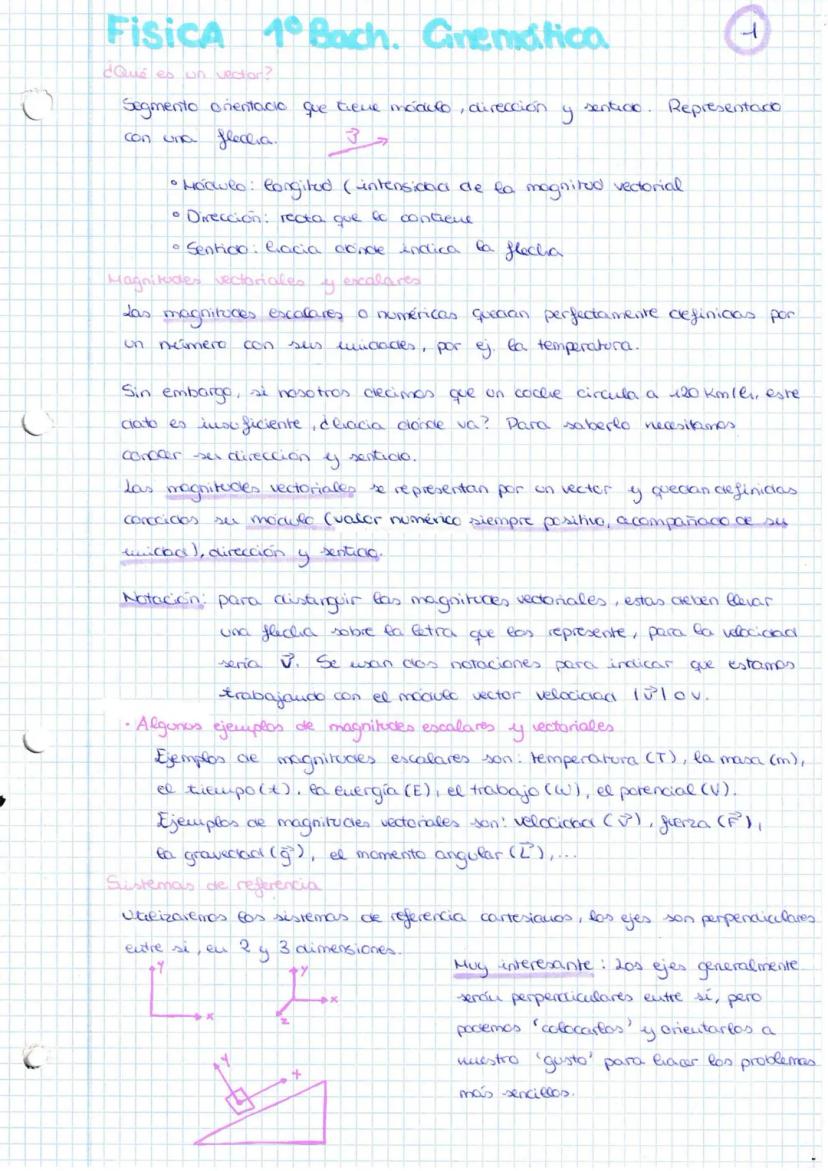 FÍSICA 1º Bach. Cinemática
1
¿Qué es un vector?
Segmento orientado que tiene módulo, dirección y sentido. Representado
con una flecha.
• Módulo: longitud (intensidad de la magnitud vectorial
• Dirección: recta que lo contiene
• Sentido: hacia dónde indica la flecha
Magnitudes vectoriales y escalares
Las magnitudes escalares o numéricas quedan perfectamente definidas por
un número con sus unidades, por ej. la temperatura.
Sin embargo, si nosotros decimos que un coche circula a 120 km/h, este
dato es insuficiente, ¿hacia dónde va? Para saberlo necesitamos
conocer su dirección y sentido.
Las magnitudes vectoriales se representan por un vector y quedan definidas
conocidos su módulo (valor numérico siempre positivo, acompañado de su
unidad), dirección y sentido.
Notación: para distinguir las magnitudes vectoriales, estas deben llevar
una flecha sobre la letra que los represente, para la velocidad
sería v⃗. Se usan dos notaciones para indicar que estamos
trabajando con el módulo vector velocidad |v⃗| o v.
• Algunos ejemplos de magnitudes escalares y vectoriales
Ejemplos de magnitudes escalares son: temperatura (T), la masa (m),
el tiempo (t), la energía (E), el trabajo (W), el potencial (V).
Ejemplos de magnitudes vectoriales son: velocidad (v⃗), fuerza (F⃗),
la gravedad (g⃗), el momento angular (L⃗),...
Sistemas de referencia
Utilizaremos los sistemas de referencia cartesianos, los ejes son perpendiculares
entre sí, en 2 y 3 dimensiones.
Y
x
Y
x
z
Y
x
Muy interesante: Los ejes generalmente
serán perpendiculares entre sí, pero
podemos 'colocarlos' y orientarlos a
nuestro 'gusto' para hacer los problemas
más sencillos.